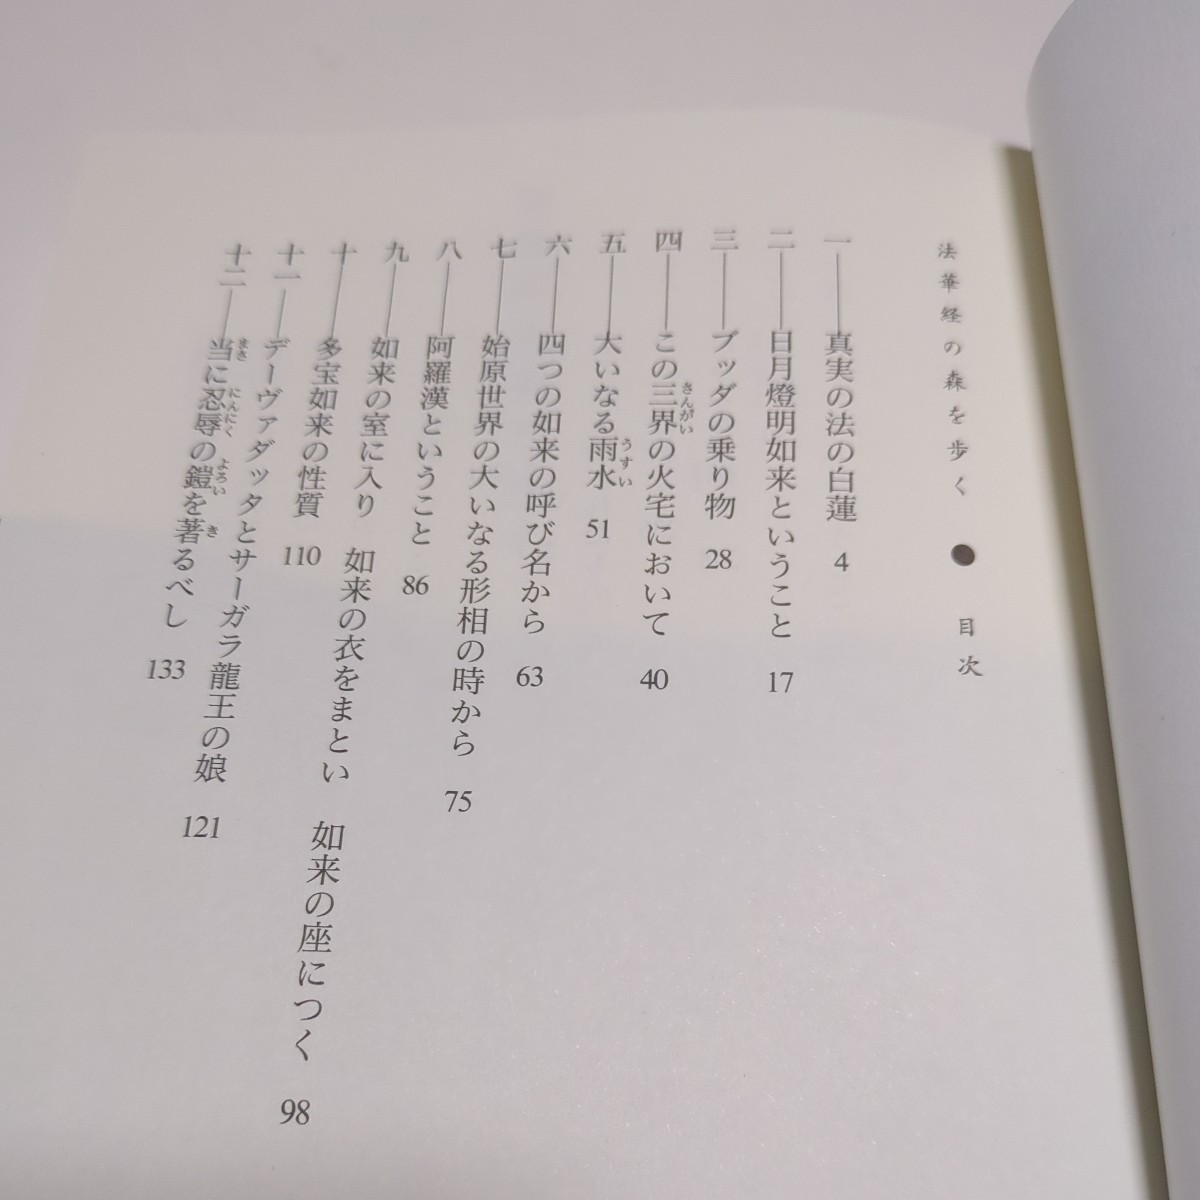 法華経の森を歩く ● 目次
一──真実の法の白蓮 4
二──日月燈明如来ということ 17
三──ブッダの乗り物 28
四──この三界の火宅において 40
さんがい
五──大いなる雨水 51
うすい
六──四つの如来の呼び名から 63
七──始原世界の大いなる形相の時から 75
八──阿羅漢ということ 86
九──如来の室に入り 如来の衣をまとい 如来の座につく 98
十──多宝如来の性質 110
十一──デーヴァダッタとサーガラ龍王の娘 121
十二──当に忍辱の鎧を著るべし 133
まさ にんにく よろい き